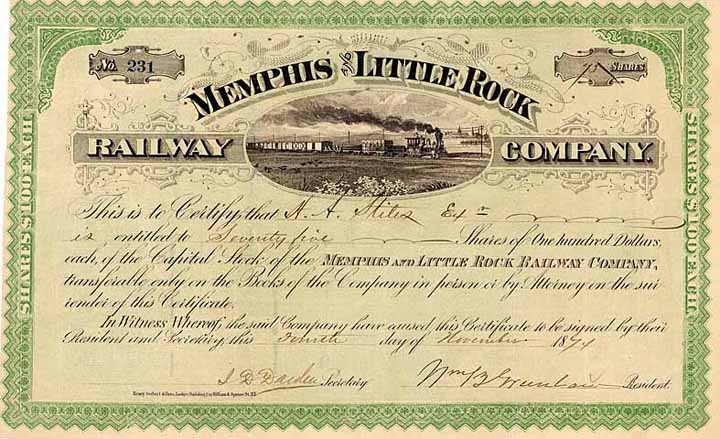 No. 231
75 SHARES
MEMPHIS AND LITTLE ROCK
RAILWAY COMPANY.
SHARES $100 EACH
SHARES $100 EACH
This is to Certify that H. A. Stiles Exr
is entitled to Seventy five Shares of One hundred Dollars,
each, of the Capital Stock of the MEMPHIS AND LITTLE ROCK RAILWAY COMPANY,
transferable only on the Books of the Company in person or by Attorney on the sur
render of this Certificate.
In Witness Whereof, the said Company have caused this Certificate to be signed by their
President and Secretary, this Fourth day of November 1874
Secretary
Wm B Greenlaw President.